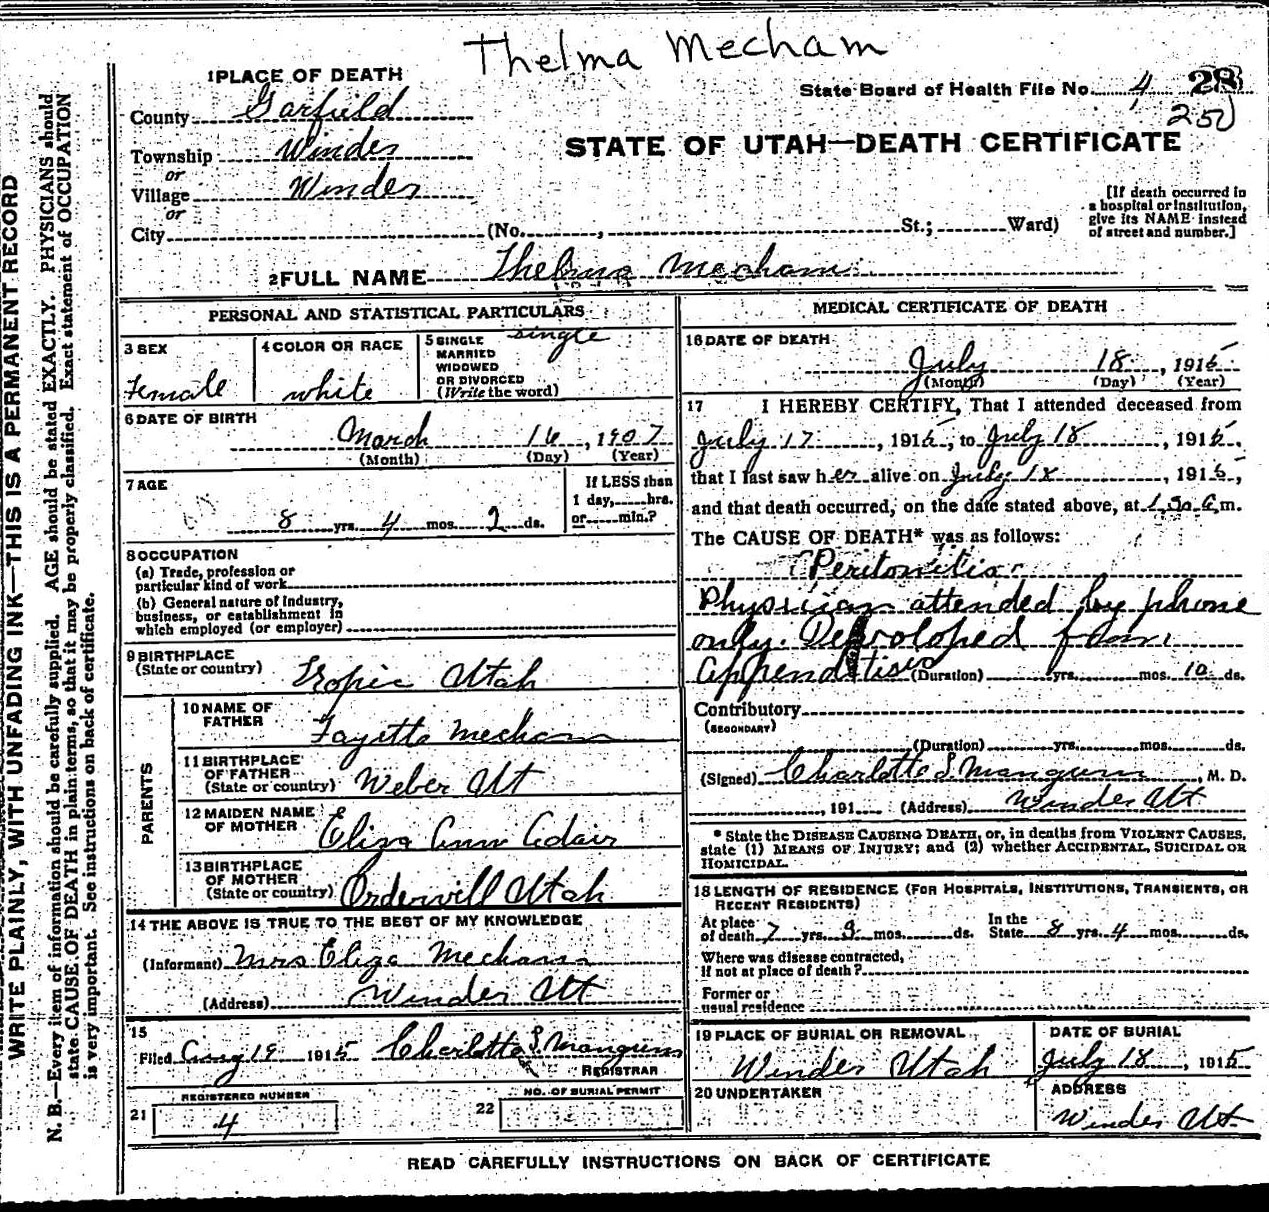 Thelma Mecham
1 PLACE OF DEATH
State Board of Health File No. 4 28
250
County Garfield
STATE OF UTAH—DEATH CERTIFICATE
Township Winder
or
Village Winder
or
City (No. , St.; Ward)
[If death occurred in
a hospital or institution,
give its NAME instead
of street and number.]
2 FULL NAME Thelma Mecham
PERSONAL AND STATISTICAL PARTICULARS
3 SEX
Female
4 COLOR OR RACE
white
5 SINGLE
MARRIED
WIDOWED
OR DIVORCED
(Write the word)
single
6 DATE OF BIRTH
March 16, 1907
(Month) (Day) (Year)
7 AGE
8 yrs. 4 mos. 2 ds.
If LESS than
1 day, hrs.
or min.?
8 OCCUPATION
(a) Trade, profession or
particular kind of work
(b) General nature of industry,
business, or establishment in
which employed (or employer)
9 BIRTHPLACE
(State or country) Tropic Utah
PARENTS
10 NAME OF
FATHER Fayette Mecham
11 BIRTHPLACE
OF FATHER
(State or country) Weber Ut
12 MAIDEN NAME
OF MOTHER Eliza Ann Adair
13 BIRTHPLACE
OF MOTHER
(State or country) Ordervill Utah
14 THE ABOVE IS TRUE TO THE BEST OF MY KNOWLEDGE
(Informant) Mrs Eliza Mecham
(Address) Winder Ut
15
Filed Aug 19 1915 Charlotte S Mangum
REGISTRAR
REGISTERED NUMBER
21 4
NO. OF BURIAL PERMIT
22
MEDICAL CERTIFICATE OF DEATH
16 DATE OF DEATH
July 18, 1915
(Month) (Day) (Year)
17 I HEREBY CERTIFY, That I attended deceased from
July 17, 1915, to July 18, 1915,
that I last saw her alive on July 18, 1915,
and that death occurred, on the date stated above, at 1.30 a.m.
The CAUSE OF DEATH* was as follows:
Peritonitis
Physician attended by phone
only. Developed from
Appenditis (Duration) yrs. mos. 10 ds.
Contributory
(SECONDARY)
(Duration) yrs. mos. ds.
(Signed) Charlotte S Mangum, M. D.
, 191 (Address) Winder Ut
* State the DISEASE CAUSING DEATH, or, in deaths from VIOLENT CAUSES,
state (1) MEANS OF INJURY; and (2) whether ACCIDENTAL, SUICIDAL OR
HOMICIDAL.
18 LENGTH OF RESIDENCE (FOR HOSPITALS, INSTITUTIONS, TRANSIENTS, OR
RECENT RESIDENTS)
At place
of death 7 yrs. 9 mos. ds.
In the
State 8 yrs. 4 mos. ds.
Where was disease contracted,
if not at place of death?
Former or
usual residence
19 PLACE OF BURIAL OR REMOVAL
Winder Utah
DATE OF BURIAL
July 18, 1915
20 UNDERTAKER
ADDRESS
Winder Ut
READ CAREFULLY INSTRUCTIONS ON BACK OF CERTIFICATE
WRITE PLAINLY, WITH UNFADING INK—THIS IS A PERMANENT RECORD
N. B.—Every item of information should be carefully supplied. AGE should be stated EXACTLY. PHYSICIANS should
state CAUSE OF DEATH in plain terms, so that it may be properly classified. Exact statement of OCCUPATION
is very important. See instructions on back of certificate.